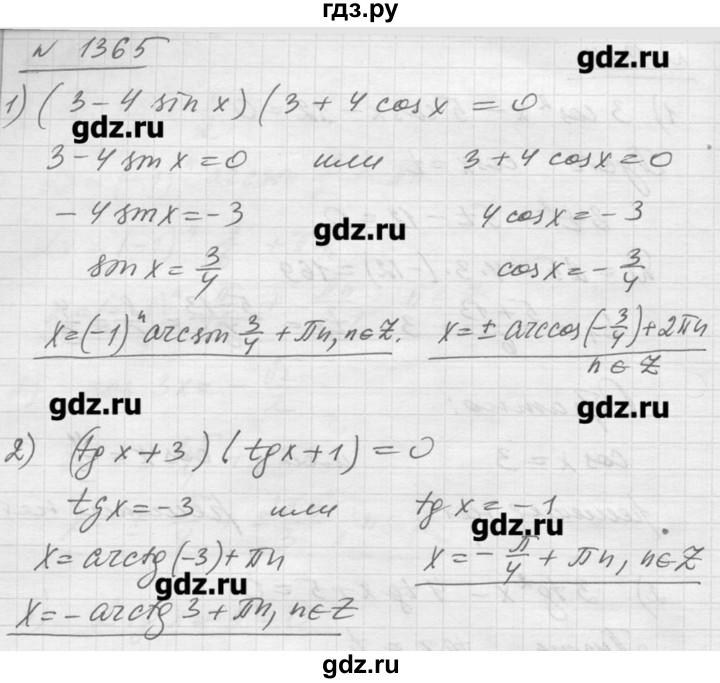 гдз.ру
№ 1365
gdz.ru
1) (3 - 4 sin x)(3 + 4 cos x = 0
gdz.ru
3 - 4 sin x = 0 или 3 + 4 cos x = 0
- 4 sin x = - 3 4 cos x = - 3
gdz.ru
sin x = 3/4 cos x = - 3/4
x = (-1)^n arcsin 3/4 + πn, n ∈ Z. x = ± arccos(- 3/4) + 2πn
n ∈ Z
gdz.ru gdz.ru
2) (tg x + 3)(tg x + 1) = 0
tg x = - 3 или tg x = - 1
gdz.ru
x = arctg(-3) + πn x = - π/4 + πn, n ∈ Z
gdz.ru
x = - arctg 3 + πn, n ∈ Z
gdz.ru